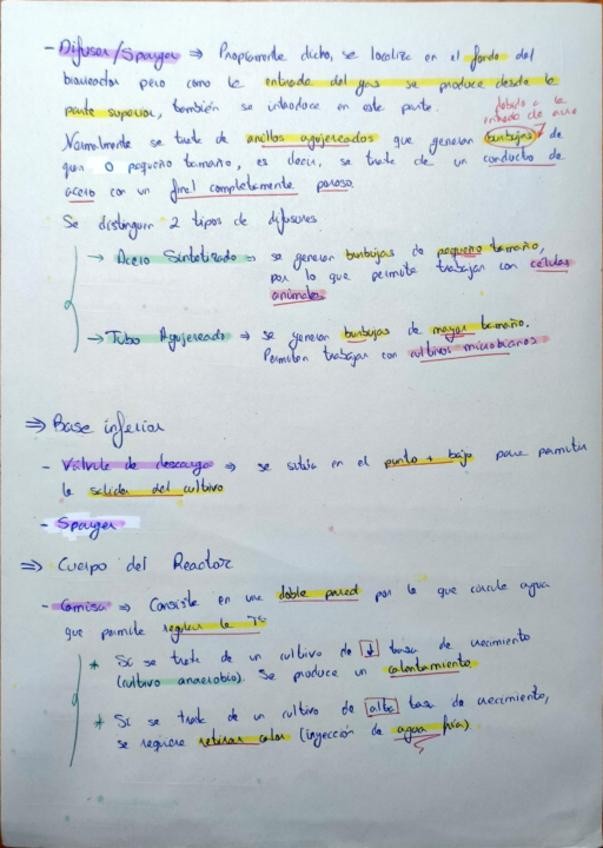 - Difusor/Sparger ⇒ Propiamente dicho, se localiza en el fondo del
bioreactor pero como la entrada del gas se produce desde la
parte superior, también se introduce en esta parte.
debido a la
entrada de aire
Normalmente se trata de anillos agujereados que generan burbujas de
gran o pequeño tamaño, es decir, se trata de un conducto de
acero con un final completamente poroso.
Se distinguen 2 tipos de difusores
→ Acero Sintetizado ⇒ se generan burbujas de pequeño tamaño,
por lo que permite trabajar con células
animales
→ Tubo Agujereado ⇒ se generan burbujas de mayor tamaño.
Permiten trabajar con cultivos microbianos
⇒ Base inferior
- Válvula de descarga ⇒ se sitúa en el punto + bajo para permitir
la salida del cultivo
- Sparger
⇒ Cuerpo del Reactor
- Camisa ⇒ Consiste en una doble pared por la que circula agua
que permite regular la Tª
* Si se trata de un cultivo de ↓ tasa de crecimiento
(cultivo anaerobio). Se produce un calentamiento
* Si se trata de un cultivo de alta tasa de crecimiento,
se requiere retirar calor (inyección de agua fría).